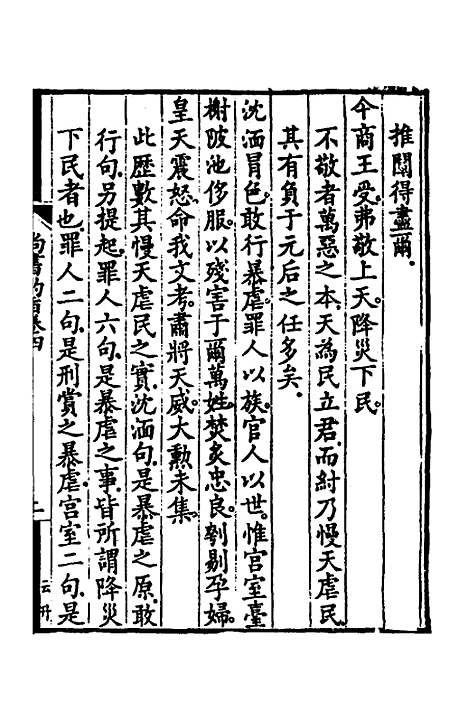 推闡得盡爾.
今商王受.弗敬上天.降災下民.
不敬者萬惡之本.天為民立君.而紂乃慢天虐民.
其有負于元后之任多矣.
沈湎冒色.敢行暴虐.罪人以族.官人以世.惟宮室臺
榭陂池侈服.以殘害于爾萬姓.焚炙忠良.刳剔孕婦.
皇天震怒.命我文考.肅將天威.大勳未集.
此歷數其慢天虐民之實.沈湎句.是暴虐之原.敢
行句.另提起.罪人六句.是暴虐之事.皆所謂降災
下民者也.罪人二句.是刑賞之暴虐.宮室二句.是
尚書約旨卷四
二